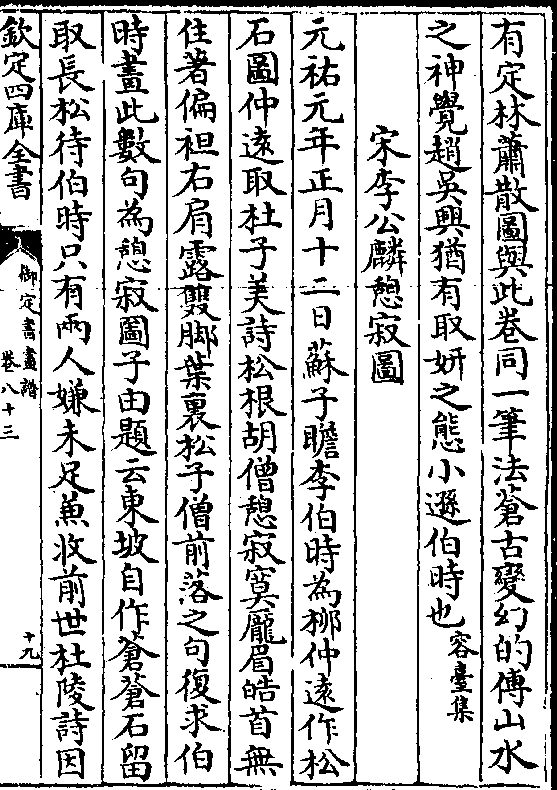 有定林蕭散圖與此卷同一筆法蒼古變幻的傳山水
之神覺趙吳興猶有取妍之態小遜伯時也容臺集
宋李公麟憩寂圖
元祐元年正月十二日蘇子瞻李伯時為栁仲遠作松
石圖仲遠取杜子美詩松根胡僧憩寂寞龐眉皓首無
住著偏袒右肩露雙脚葉裏松子僧前落之句復求伯
時畫此數句為憩寂圖子由題云東坡自作蒼蒼石留
取長松待伯時只有兩人嫌未足兼收前世杜陵詩因
欽定四庫全書
御定書畫譜
卷八十三
十九